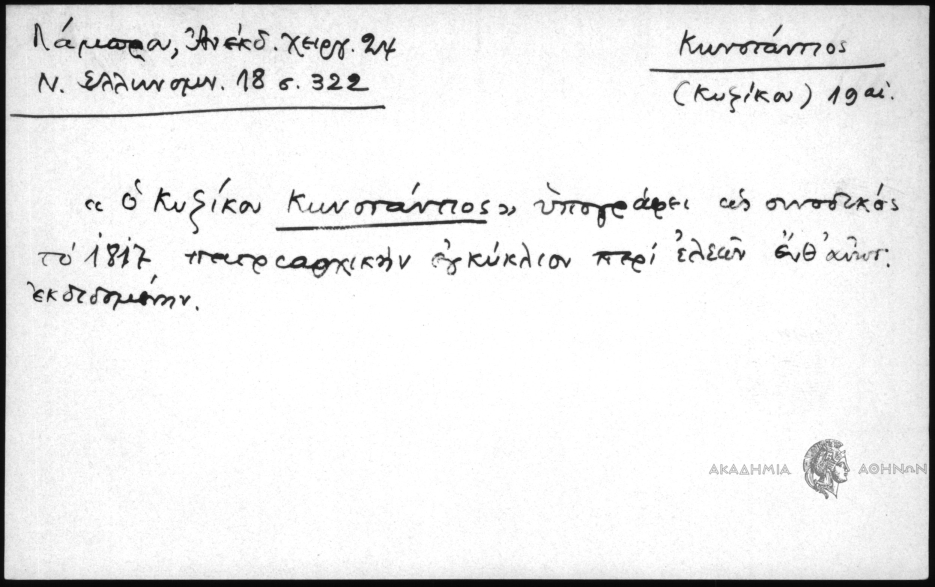 Λάμπρου, Ἀνέκδ. χειρ. 24
Ν. Ἑλληνομν. 18 σ. 322
Κωνστάντιος
(Κυζίκου) 19 αἰ.
«ὁ Κυζίκου Κωνστάντιος» ὑπογράφει ὡς συνοδικός
τό 1817 πατριαρχικήν ἐγκύκλιον περί ἐλεῶν
ἐκδεδομένην.
ΑΚΑΔΗΜΙΑ ΑΘΗΝΩΝ